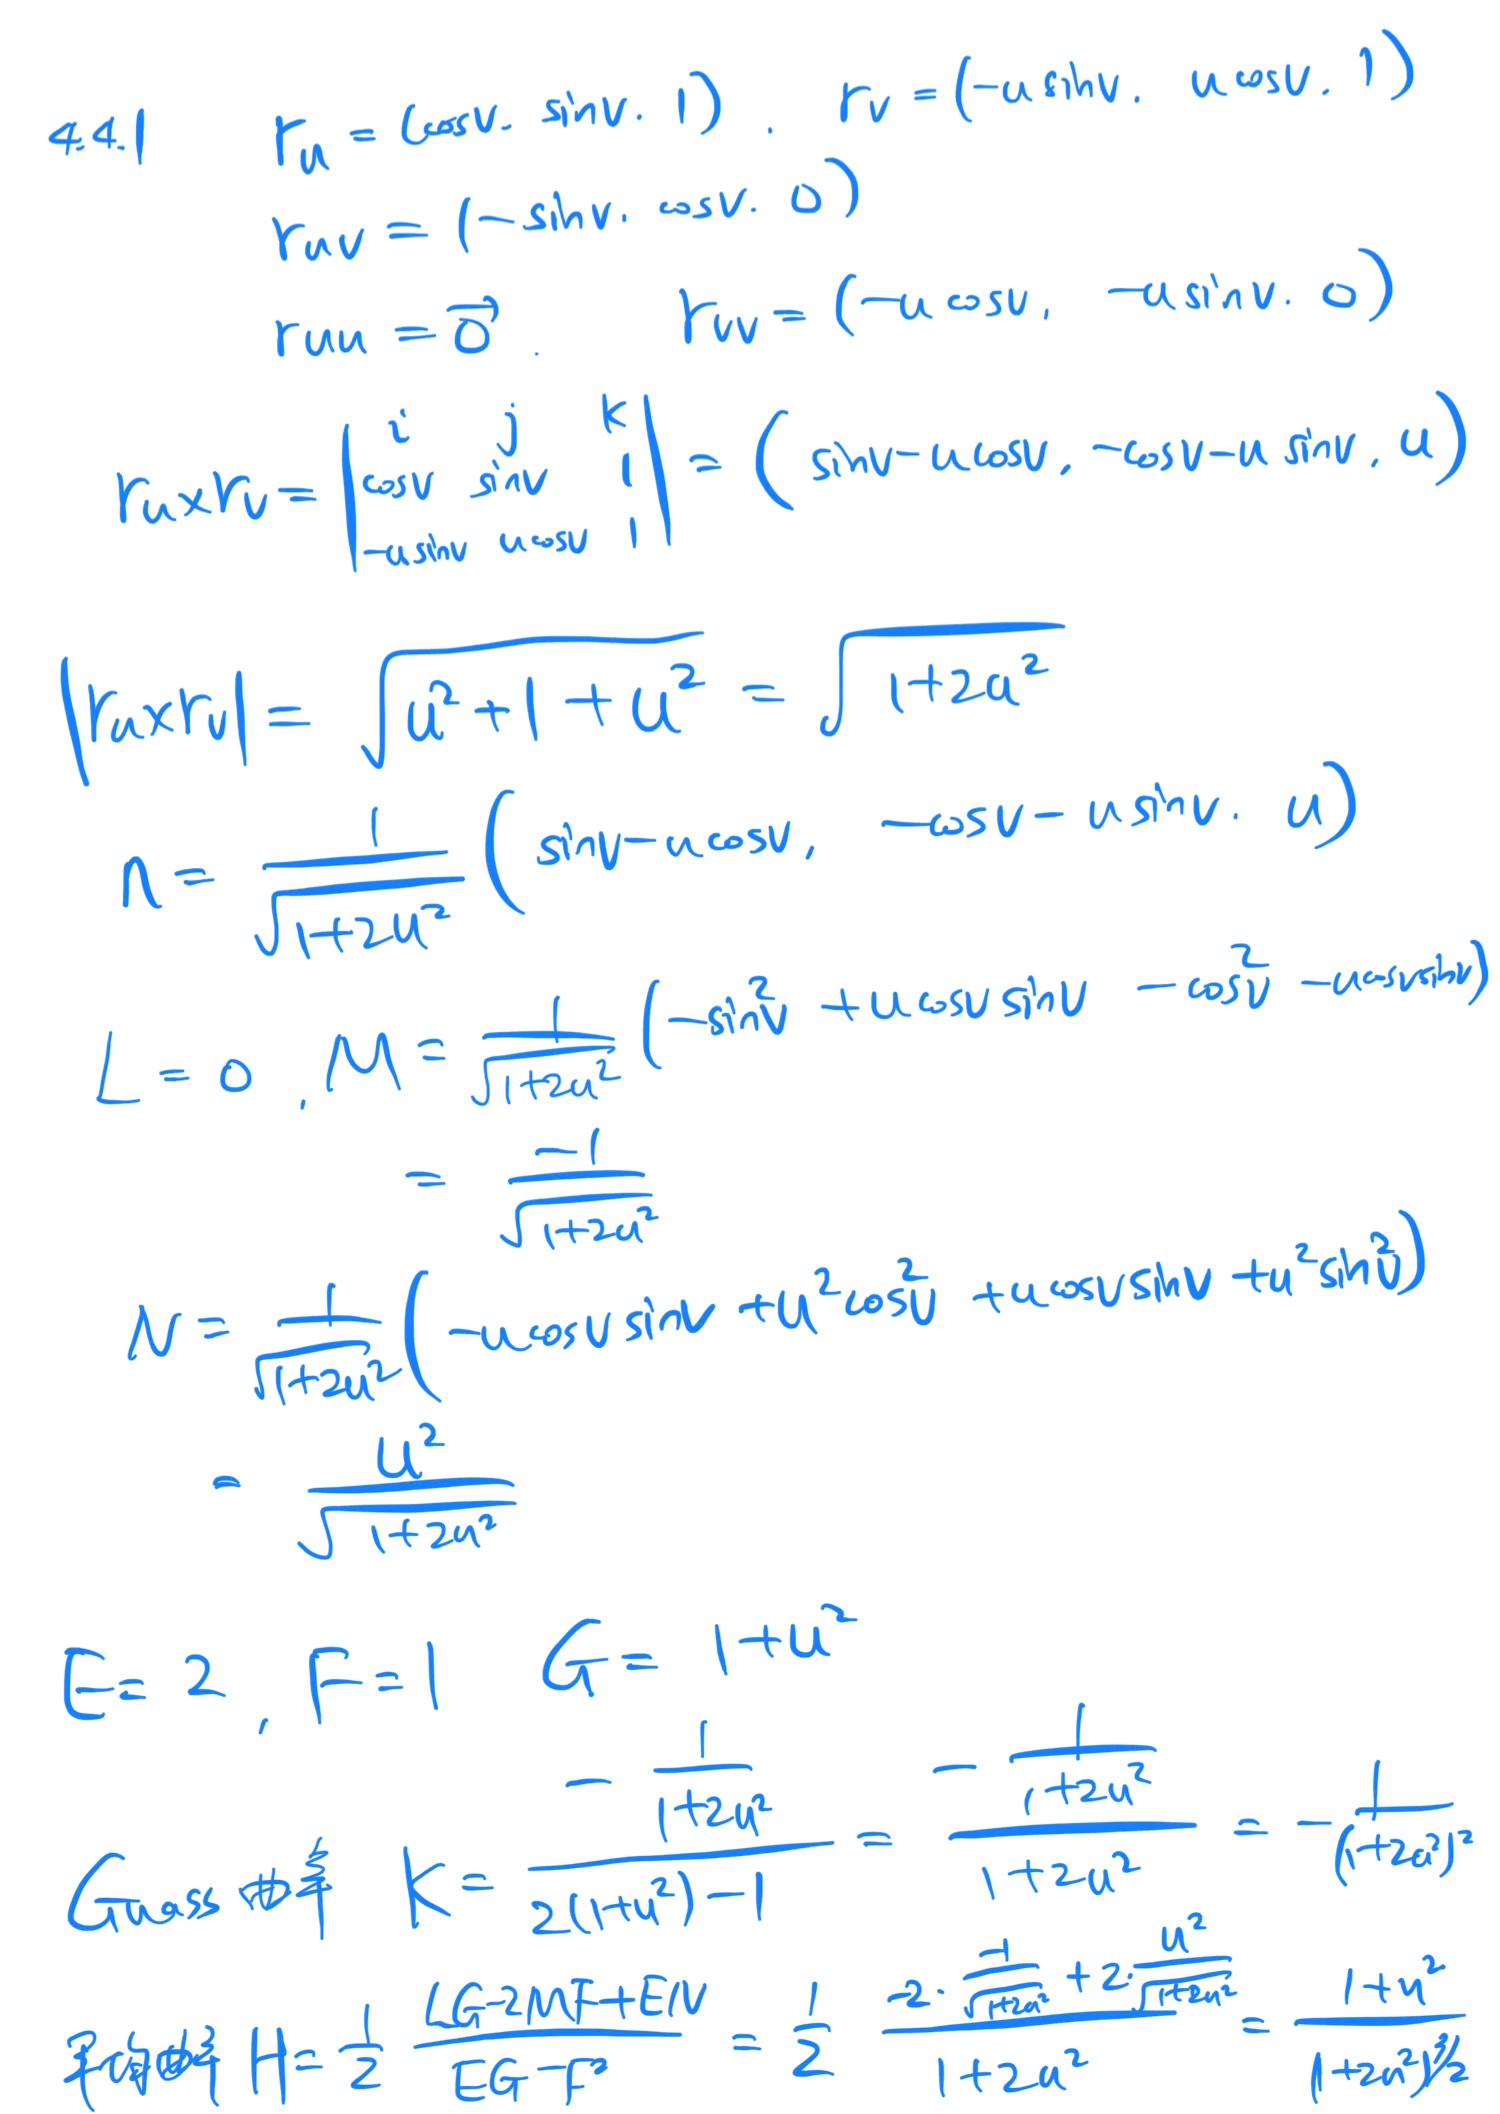 4.4.1 r_u = (cosv. sinv. 1). r_v = (-u sinv. u cosv. 1)
r_uv = (-sinv. cosv. 0)
r_uu = \vec{0}. r_vv = (-u cosv, -u sinv. 0)
r_u×r_v = |i j k; cosv sinv 1; -u sinv u cosv 1| = (sinv-u cosv, -cosv-u sinv, u)
|r_u×r_v| = √(u²+1+u²) = √(1+2u²)
n = 1/√(1+2u²) (sinv-u cosv, -cosv-u sinv. u)
L=0, M = 1/√(1+2u²) (-sin²v +u cosv sinv -cos²v -u cosv sinv)
= -1/√(1+2u²)
N = 1/√(1+2u²) (-u cosv sinv +u²cos²v +u cosv sinv +u²sin²v)
= u²/√(1+2u²)
E=2, F=1 G=1+u²
Guass 曲率 K = (-1/(1+2u²))/(2(1+u²)-1) = (-1/(1+2u²))/(1+2u²) = -1/(1+2u²)²
平均曲率 H = 1/2 (LG-2MF+EN)/(EG-F²) = 1/2 (-2·-1/√(1+2u²) +2·u²/√(1+2u²))/(1+2u²) = (1+u²)/(1+2u²)^{3/2}